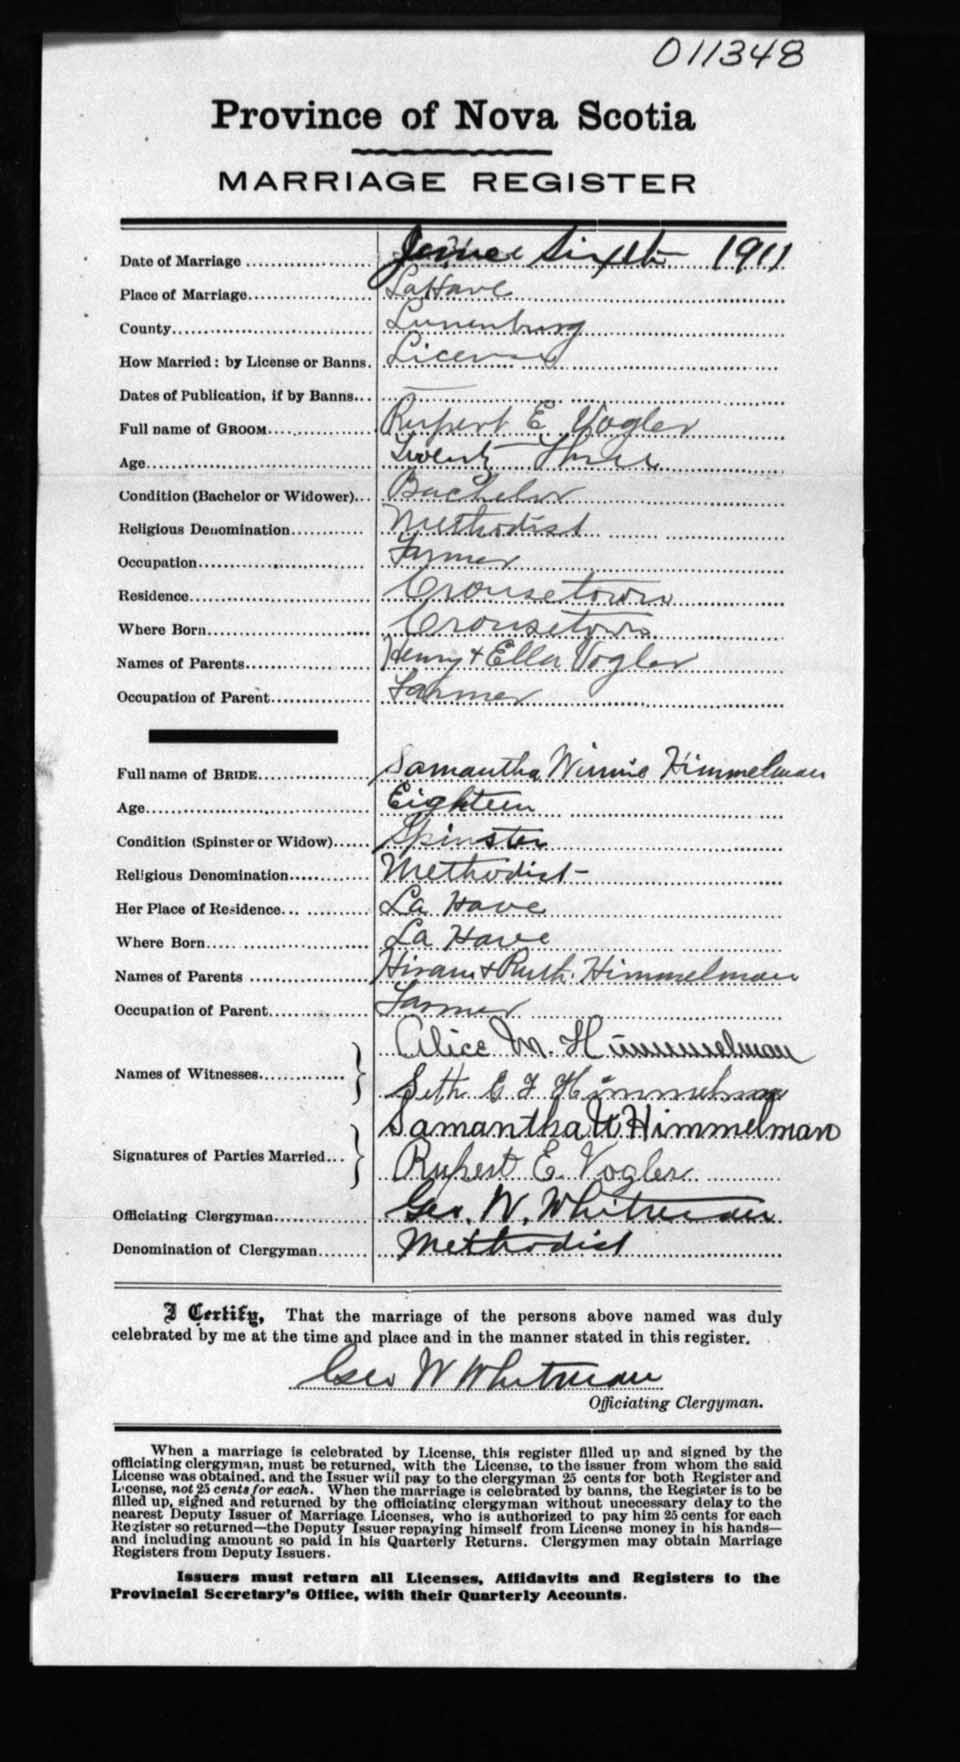 011348
Province of Nova Scotia
MARRIAGE REGISTER
Date of Marriage June Sixth 1911
Place of Marriage LaHave
County Lunenburg
How Married: by License or Banns. License
Dates of Publication, if by Banns
Full name of GROOM Rupert E Vogler
Age Twenty Three
Condition (Bachelor or Widower) Bachelor
Religious Denomination Methodist
Occupation Farmer
Residence Crousetown
Where Born Crousetown
Names of Parents Henry + Ella Vogler
Occupation of Parent Farmer
Full name of BRIDE Samantha Winnie Himmelman
Age Eighteen
Condition (Spinster or Widow) Spinster
Religious Denomination Methodist
Her Place of Residence La Have
Where Born La Have
Names of Parents Hiram + Ruth Himmelman
Occupation of Parent Farmer
Alice M. Himmelman
Names of Witnesses
Seth E J Himmelman
Samantha W Himmelman
Signatures of Parties Married
Rupert E. Vogler
Officiating Clergyman Geo. W. Whitman
Denomination of Clergyman Methodist
I Certify, That the marriage of the persons above named was duly
celebrated by me at the time and place and in the manner stated in this register.
Geo W Whitman
Officiating Clergyman.
When a marriage is celebrated by License, this register filled up and signed by the
officiating clergyman, must be returned, with the License, to the issuer from whom the said
License was obtained, and the Issuer will pay to the clergyman 25 cents for both Register and
License, not 25 cents for each. When the marriage is celebrated by banns, the Register is to be
filled up, signed and returned by the officiating clergyman without unecessary delay to the
nearest Deputy Issuer of Marriage Licenses, who is authorized to pay him 25 cents for each
Register so returned—the Deputy Issuer repaying himself from License money in his hands—
and including amount so paid in his Quarterly Returns. Clergymen may obtain Marriage
Registers from Deputy Issuers.
Issuers must return all Licenses, Affidavits and Registers to the
Provincial Secretary's Office, with their Quarterly Accounts.